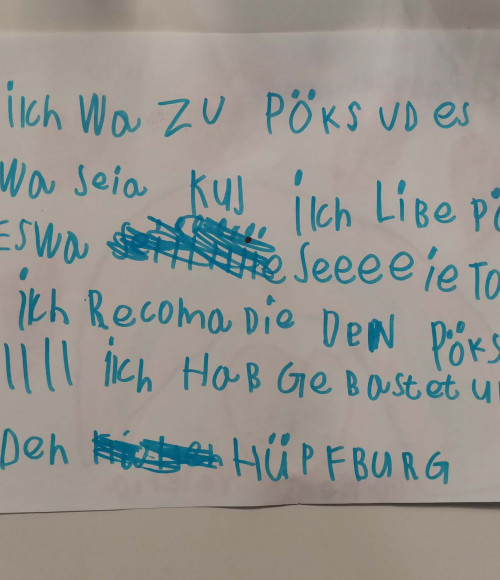 iich Wa ZU PÖKS UD es
Wa Seia KUJ iich LiBe PÖ
ESWa Seeee ie To
ikh Recoma Die DeN PÖKS
IIIII iich HaB Ge Bastet U
Den HÜPFBURG